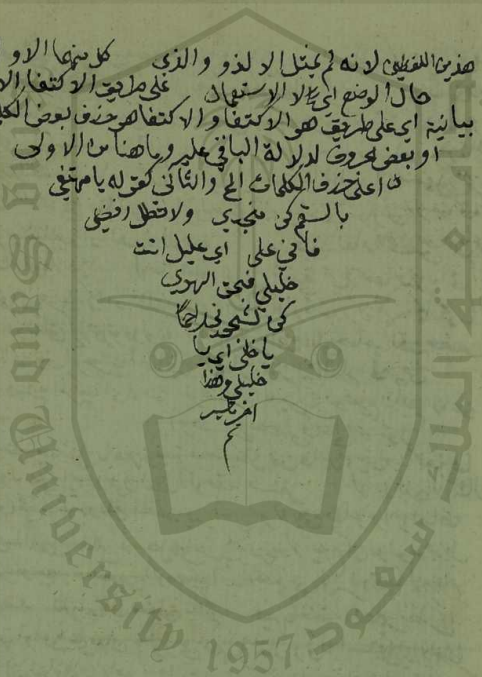 هذين اللفظين لانه لم يمثل الا لذو والذى كل منهما الاو
حال الوضع اي لا الاستعمال على طريق الاكتفا الا
بيانية اي على طريق هو الاكتفا والاكتفا هو حذف بعض الكلما
او بعض الحروف لدلالة الباقي عليه وما هنا من الاولى
اعنى حذف الكلمات الخ والثانى كقوله يا متهمي
بالسقم كن منجدي ولا تطل رفضي
فاني على اي عليل انت
خليلي فحق الهوى
كن لشجوني راحما
يا خلي اي يا
خليلي وهذا
اخر
م
King Saud University
جامعة الملك سعود
1957